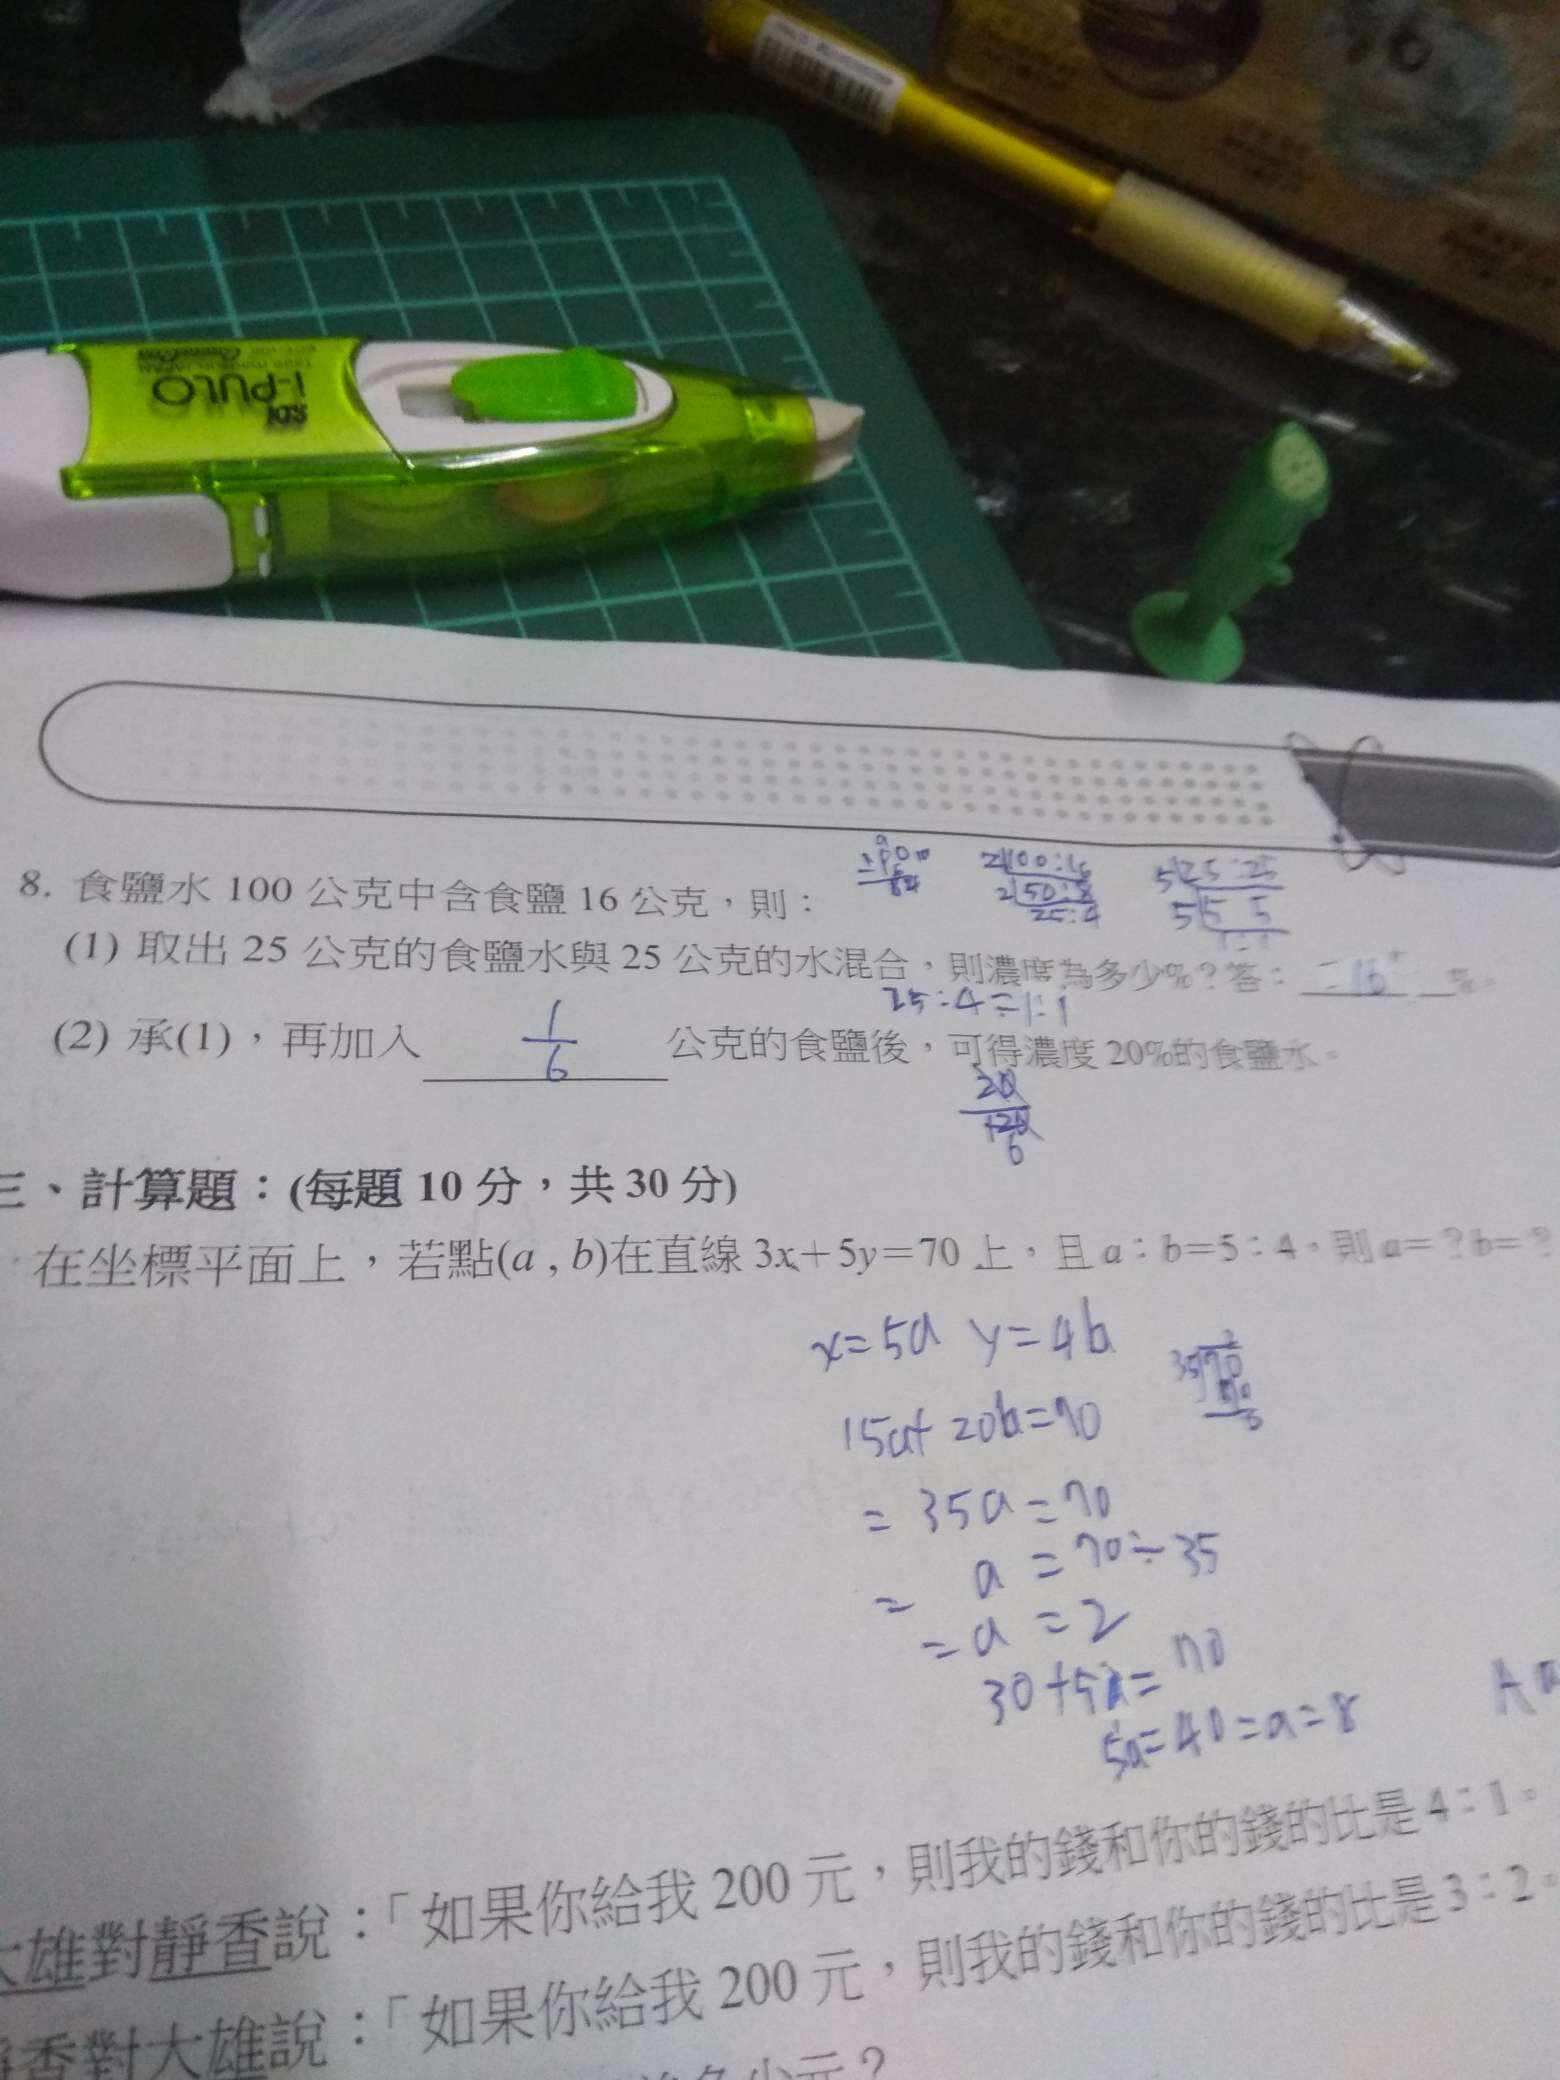 i-PULO
SDI
8. 食鹽水 100 公克中含食鹽 16 公克,則:
2|100:16
2|50:8
25:4
5|25:25
5|5 5
1:1
(1) 取出 25 公克的食鹽水與 25 公克的水混合,則濃度為多少%?答: 16 %。
25:4=1:1
(2) 承(1),再加入 1/6 公克的食鹽後,可得濃度 20%的食鹽水。
20
120
6
三、計算題:(每題 10 分,共 30 分)
在坐標平面上,若點(a , b)在直線 3x+5y=70 上,且 a:b=5:4,則 a=?b=?
x=5a y=4b
15a+20b=70
= 35a=70
= a = 70÷35
= a = 2
30+5a=70
5a=40=a=8
A
大雄對靜香說:「如果你給我 200 元,則我的錢和你的錢的比是 4:1。
靜香對大雄說:「如果你給我 200 元,則我的錢和你的錢的比是 3:2。
多少元?